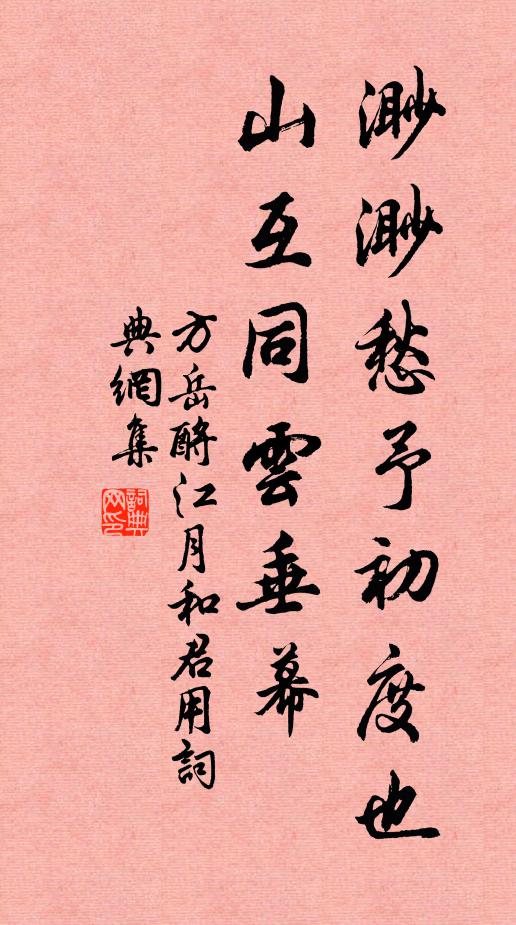 渺渺愁予初度也
山互同雲垂幕
方岳酹江月和君用詞
典網集
詞典網印